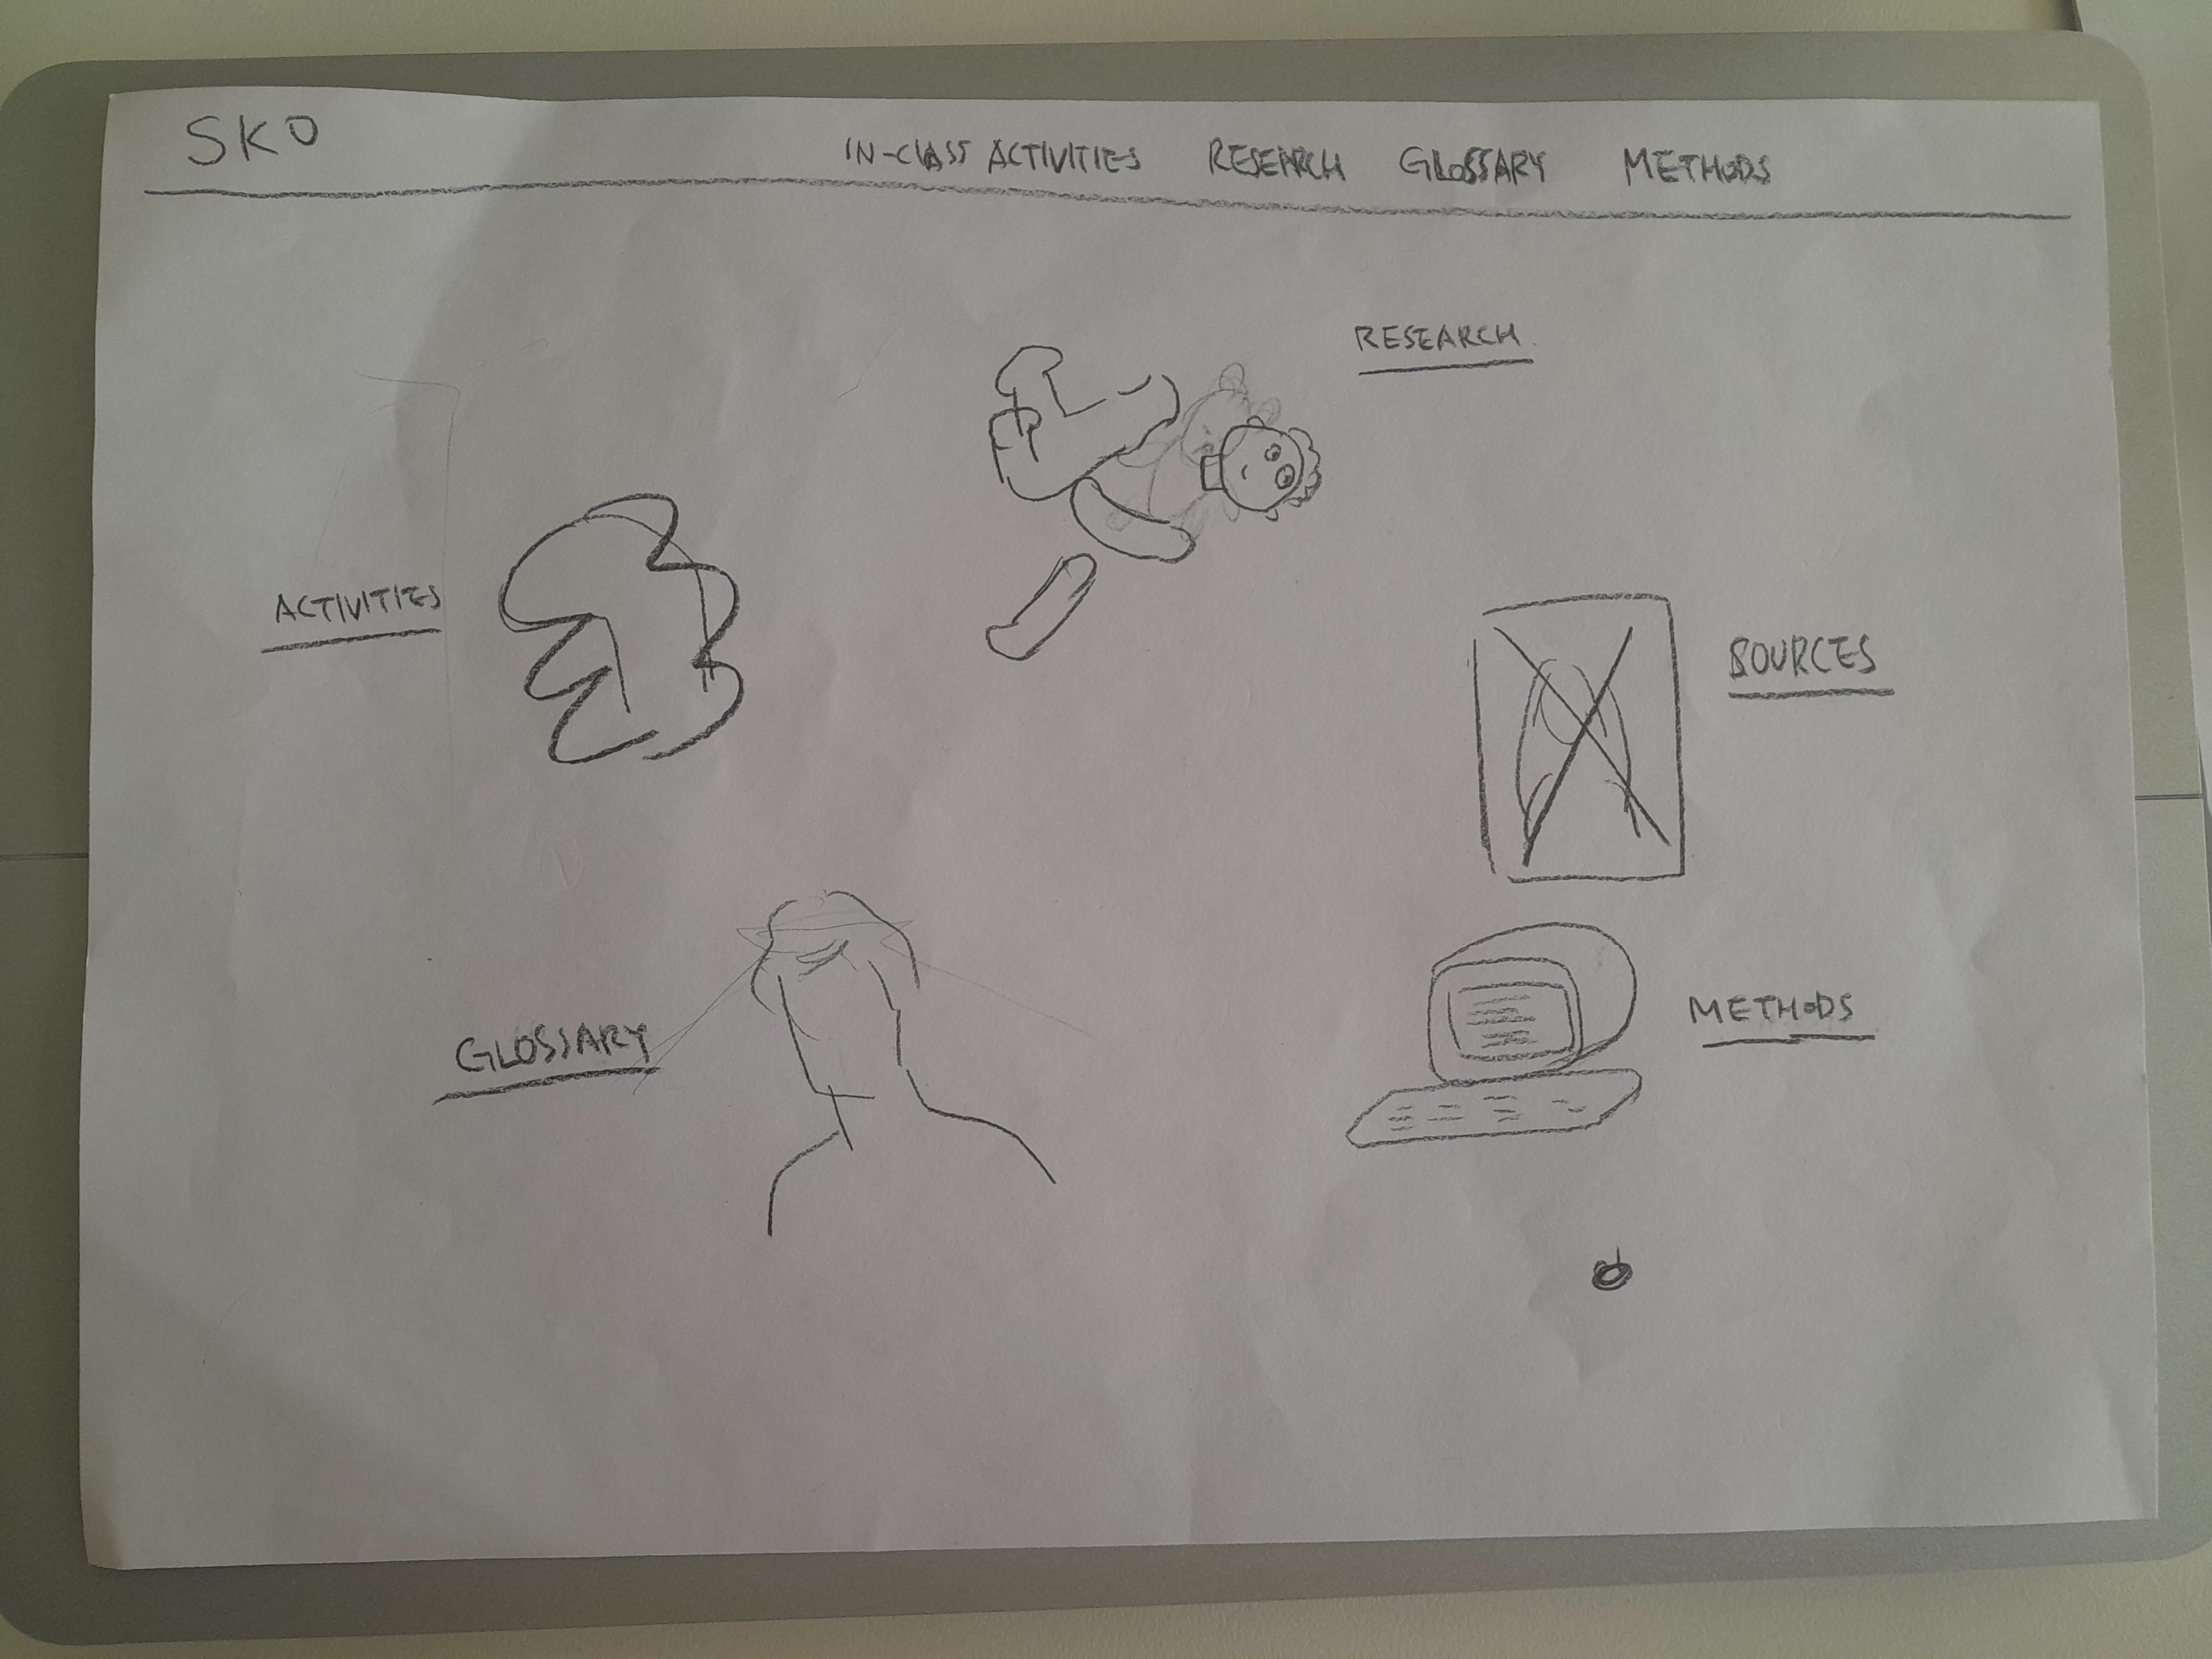 SKO
IN-CLASS ACTIVITIES RESEARCH GLOSSARY METHODS
RESEARCH.
ACTIVITIES
SOURCES
GLOSSARY
METHODS